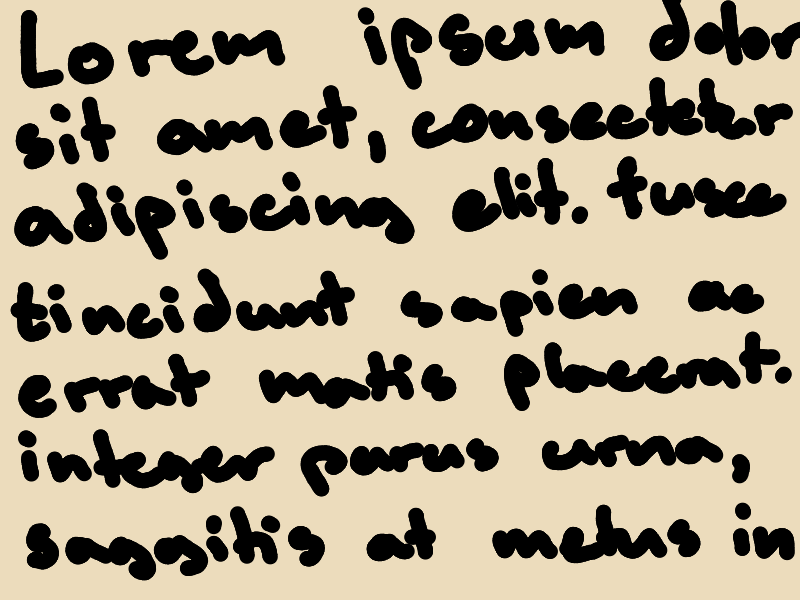 Lorem ipsum dolor
sit amet, consectetur
adipiscing elit. fusce
tincidunt sapien ac
errat matis placerat.
integer purus urna,
sagositis at metus in